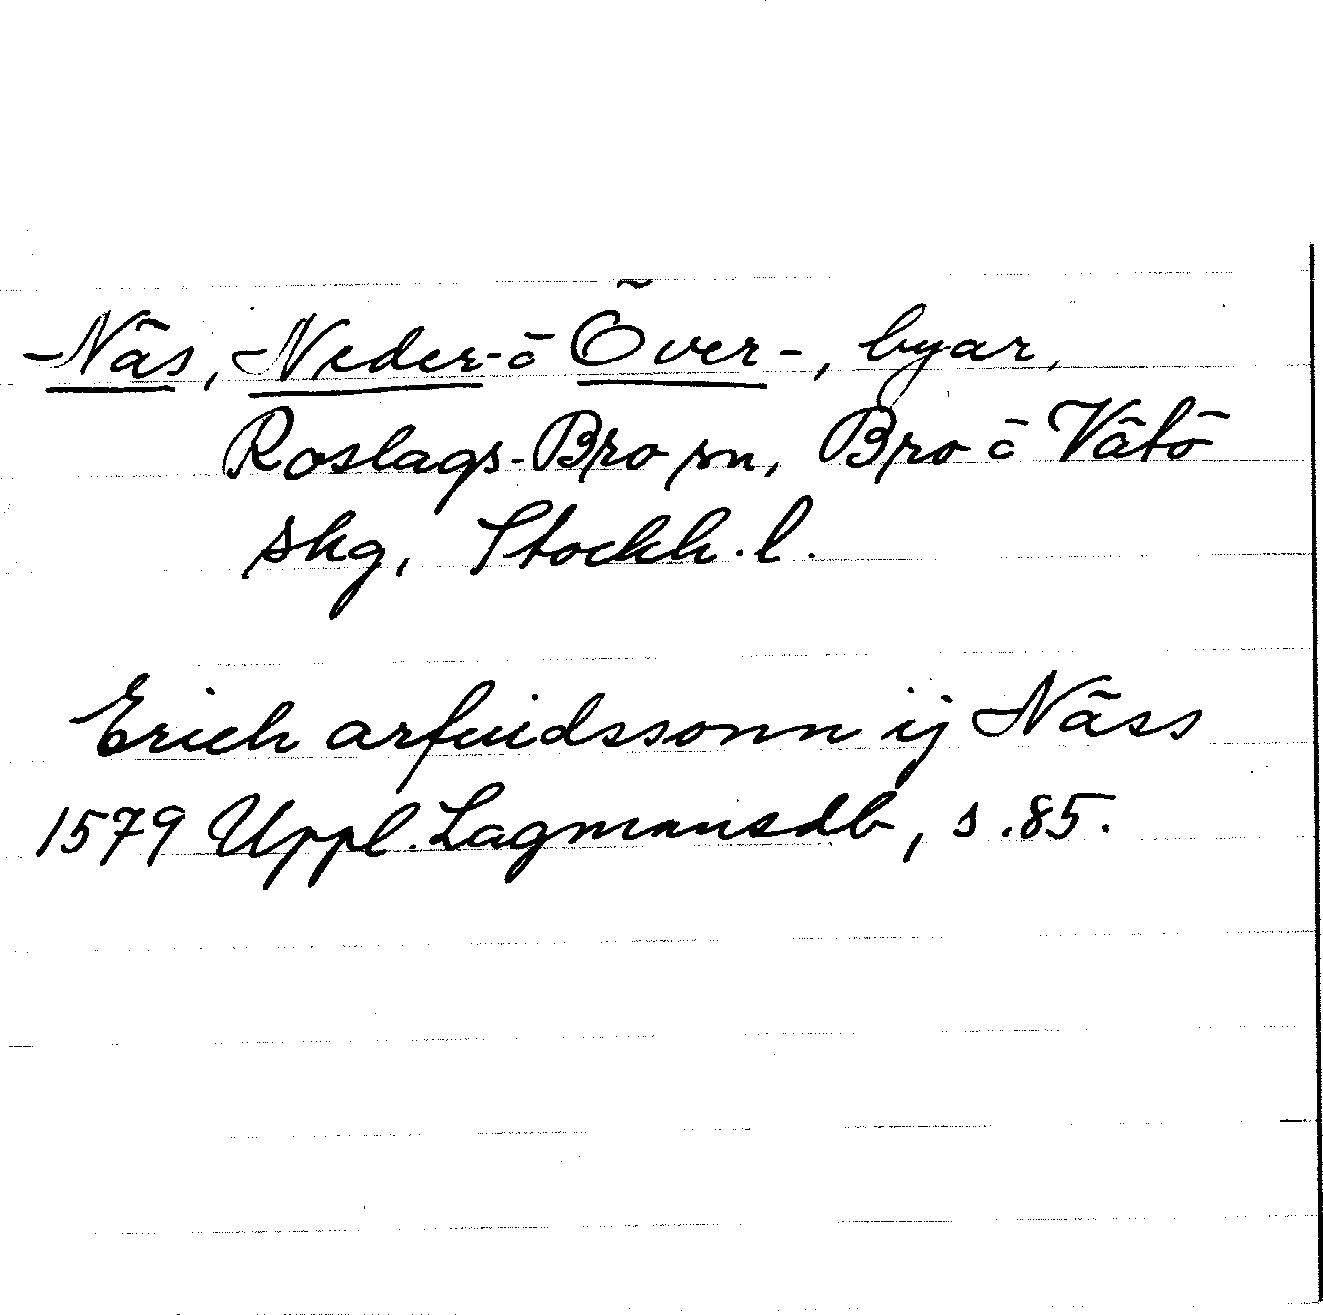 -Näs, Neder- o Över-, byar,
Roslags-Bro sn, Bro o Vätö
skg, Stockh. l.
Erich arfuidssonn ij Näss
1579 Uppl. Lagmansdb, s. 85.